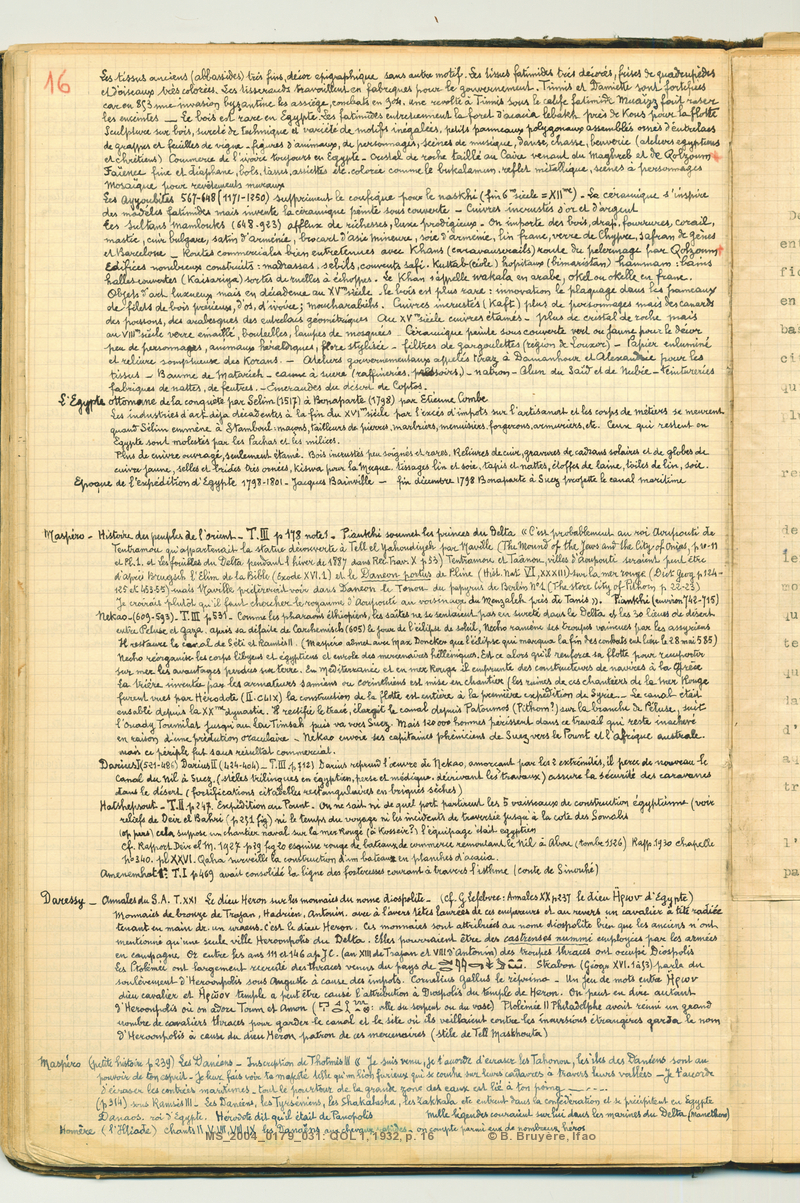 16
Les tissus anciens (abbassides) très fins, décor epigraphique sans autre motif. Les tissus fatimides très décorés, frises de quadrupèdes
et d'oiseaux très colorées. Les tisserands travaillent en fabriques pour le gouvernement. Tinnis et Damiette sont fortifiées
car en 853 une invasion byzantine les assiège, combats en 304. une révolte à Tinnis sous le calife fatimide Muaizz fait raser
les enceintes _ Le bois est rare en Egypte. Les fatimides entretiennent la foret d'acacia lebakh près de Kous pour la flotte
Sculpture sur bois, sureté de technique et variété de motifs inégalées, petits panneaux polygonaux assemblés ornés d'entrelacs
de grappes et feuilles de vigne - figures d'animaux, de personnages, scènes de musique, danse, chasse, beuverie (ateliers egyptiens
et chrétiens) Commerce de l'ivoire toujours en Egypte - Cristal de roche taillé au Caire venant du Maghreb et de Qolzoum +
Faïence fine et diaphane, bols, tasses, assiettes etc. colorée comme le bukalamun, reflet métallique, scènes à personnages
Mosaïque pour revêtements muraux
Les Ayyoubites 567-648 (1171-1250) suppriment le coufique pour le naskhi (fin 6eme siècle = XIIme) - La céramique s'inspire
des modèles fatimides mais invente la céramique peinte sous couverte - Cuivres incrustés d'or et d'argent
Les Sultans Mamlouks (648-923) afflux de richesses, luxe prodigieux - On importe des bois, drap, fourrures, corail,
mastic, cuir bulgare, satin d'Arménie, brocart d'asie mineure, soie d'armenie, lin franc, verre de Chypre, safran de gènes
et Barcelone _ Routes commerciales bien entretenues avec Khans (caravansérails) route du pelerinage par Qolzoum +
Edifices nombreux construits : madrassas, sebils, couvents, safi. Kuttab (école) hopitaux (bimaristan) hammam: bains
halles couvertes (Kaisariya) sortes de ruelles à échoppes. Le Khan s'appelle wakala en arabe, okel ou okelle en franc.
Objets d'art luxueux mais en décadence au XVme siècle. le bois est plus rare: innovation le plaquage dans les panneaux
de filets de bois précieux, d'os, d'ivoire; moucharabiehs. Cuivres incrustés (Kaft) plus de personnages mais des canards
des poissons, des arabesques des entrelacs géométriques. Au XVme siècle cuivres étamés - plus de cristal de roche mais
au VIIIme siècle verre émaillé, bouteilles, lampes de mosquées - Céramique peinte sous couverte vert ou jaune pour le décor
peu de personnages, animaux héraldiques, flore stylisée - filtres de gargoulettes (région de Louxor) - Papier enluminé
et reliure somptueuse des Korans. - Ateliers gouvernementaux appelés tiraz à Damanhour et Alexandrie pour les
tissus - Baume de Matarieh - canne à sucre (raffineries, pressoirs) - natron - Alun du Saïd et de Nubie - teintureries
fabriques de nattes, de feutres. - Emeraudes du désert de Coptos.
L'Egypte ottomane de la conquête par Selim (1517) à Bonaparte (1798) par Etienne Combe
Les industries d'art déjà décadentes à la fin du XVIme siècle par l'excès d'impots sur l'artisanat et les corps de métiers se meurent
quand Sélim emmène à Stamboul: maçons, tailleurs de pierres, marbriers, menuisiers, forgerons, armuriers, etc. Ceux qui restent en
Egypte sont molestés par les Pachas et les milices.
Plus de cuivre ouvragé, seulement étamé. Bois incrustés peu soignés et rares. Reliures de cuir, gravures de cadrans solaires et de globes de
cuivre jaune, selles et brides très ornées, kiswa pour la Mecque. tissages lin et soie, tapis et nattes, étoffes de laine, toiles de lin, soie.
Epoque de l'expédition d'Egypte 1798-1801 - Jacques Bainville - fin décembre 1798 Bonaparte à Suez projette le canal maritime
Maspéro - Histoire des peuples de l'orient - T. III p 178 note 1. - Piankhi soumet les princes du Delta « C'est probablement au roi Aoupouti de
Tentramou qu'appartenait la statue découverte à Tell el Yahoudiyeh par Naville (The Mound of the Jews and the City of Onias, p. 10-11
et Pl. 1. et les fouilles du Delta pendant l'hiver de 1887 dans Rec. Trav. X p 53) Tentramou et Taânou, villes d'Aoupouti seraient peut être
d'après Brugsch l'Elim de la Bible (Exode XVI. 1) et le Daneon portus de Pline (Hist. Nat. VI, XXXIII) sur la mer rouge (Dict geog p 124-
125 et 1453-55) mais Naville préférerait voir dans Daneon le Tonou du papyrus de Berlin No 1 (The store city of Pithom p. 22-23)
Je croirais plutôt qu'il faut chercher le royaume d'Aoupouti au voisinage du Menzaleh près de Tanis ». Piankhi (environ 742-715)
Nekao - (609-593) - T. III p 531 - Comme les pharaons éthiopiens, les saïtes ne se sentaient pas en sureté dans le Delta et les 30 lieues de désert
entre Péluse et Gaza. après sa défaite de Carchemisch (605) le jour de l'éclipse de soleil, Necho ramène ses troupes vaincues par les assyriens
Il restaure le canal de Séti et Ramsès II. (Maspéro admet avec Max Doncker que l'éclipse qui marqua la fin des combats eut lieu le 28 mai 585)
Necho réorganise les corps libyens et égyptiens et enrole des mercenaires helléniques. Est ce alors qu'il renforce sa flotte pour remporter
sur mer les avantages perdus sur terre. En Méditerranée et en mer Rouge il emprunte des constructeurs de navires à la Grèce
La trière inventée par les armateurs samiens ou corinthiens est mise en chantier (les ruines de ces chantiers de la Mer Rouge
furent vues par Hérodote (II. CLIX) la construction de la flotte est antérieure à la première expédition de Syrie. - Le canal était
ensablé depuis la XXme dynastie. Il rectifie le tracé, élargit le canal depuis Patoumos (Pithom?) sur la branche de Péluse, suit
l'ouady Toumilat jusqu'au lac Timsah puis va vers Suez. Mais 120 000 hommes périssent dans ce travail qui reste inachevé
en raison d'une prédiction oraculaire. - Nekao envoie ses capitaines phéniciens de Suez vers le Pount et l'Afrique australe.
mais ce périple fut sans résultat commercial.
Darius I (521-486) Darius II (424-404) - T. III. p, 512) Darius reprend l'œuvre de Nekao, amorçant par les 2 extrémités, il perce de nouveau le
Canal du Nil à Suez, (stèles trilingues en égyptien, perse et médique. décrivant les travaux) assure la sécurité des caravanes
dans le désert (fortifications citadelles rectangulaires en briques sèches)
Hatshepsout - T. II p 247. Expédition au Pount - On ne sait ni de quel port partirent les 5 vaisseaux de construction égyptienne (voir
reliefs de Deir el Bahri (p 251 fig) ni le temps du voyage ni les incidents de traversée jusqu'à la cote des Somalis
cela suppose un chantier naval sur la mer Rouge (à Kosseir?) l'équipage était egyptien
Cf. Rapport Deir el M. 1927 p 29 fig 20 esquisse rouge de bateaux de commerce remontant le Nil à Abou (tombe 1126) Rapp. 1930 chapelle
no 340. pl XXVI. Qaha surveille la construction d'un bateau en planches d'acacia.
Amenemhat Ier T. I p 469 avait consolidé la ligne des forteresses courant à travers l'isthme (conte de Sinouhé)
Daressy - Annales du S.A. T. XXI Le dieu Heron sur les monnaies du nome diospolite - (cf. G. Lefebvre: Annales XX p 237 le dieu Ηρων d'Egypte)
Monnaies de bronze de Trajan, Hadrien, Antonin. avec à l'avers têtes laurées de ces empereurs et au revers un cavalier à tête radiée
tenant en main dr. un uraeus. C'est le dieu Heron. Ces monnaies sont attribuées au nome diospolite bien que les anciens n'ont
mentionné qu'une seule ville Heroonpolis du Delta. Elles pourraient être des castrenses nummi employées par les armées
en campagne. Or entre les ans 111 et 146 ap. J.C. (an XIII de Trajan et VIII d'Antonin) des troupes thraces ont occupé Diospolis
les Ptolémées ont largement recruté des thraces venus du pays de Strabon (Géogr XVI. 1 à 53) parle du
soulèvement d'Heroonpolis sous Auguste à cause des impots. Cornelius Gallus le réprima - Un jeu de mots entre Ηρων
dieu cavalier et Ηρωον temple a peut être causé l'attribution à Diospolis du temple de Heron. On peut en dire autant
d'Heroonpolis où on adore Toum et Amon ( : ville du serpent ou du vase) Ptolémée II Philadelphe avait réuni un grand
nombre de cavaliers thraces pour garder le canal et le site où ils veillaient contre les incursions étrangères garda le nom
d'Heroonpolis à cause du dieu Héron patron de ces mercenaires (stèle de Tell Maskhouta)
Maspéro (petite histoire p 239) Les Danéens - Inscription de Thotmès III « Je suis venu, je t'accorde d'écraser les Tahonou, les isles des Danéens sont au
pouvoir de ton esprit - Je leur fais voir ta majesté telle qu'un lion furieux qui se couche sur leurs cadavres à travers leurs vallées - Je t'accorde
d'écraser les contrées maritimes - tout le pourtour de la grande zone des eaux est lié à ton poing _ . _ . _
(p. 314) sous Ramsès III - Les Danéens, les Tyrséniens, les Shakalasha, les Zakkala etc entrent dans la confédération et se précipitent en Egypte
Danaos. roi d'Egypte. Hérodote dit qu'il était de Panopolis Mille légendes couraient sur lui dans les marines du Delta (Manethon)
Homère (l'Illiade) chants II, V, VII, VIII, IX les Danaëns on compte parmi eux de nombreux héros
MS_2004_0179_031: QOL 1, 1932, p. 16 © B. Bruyère, Ifao